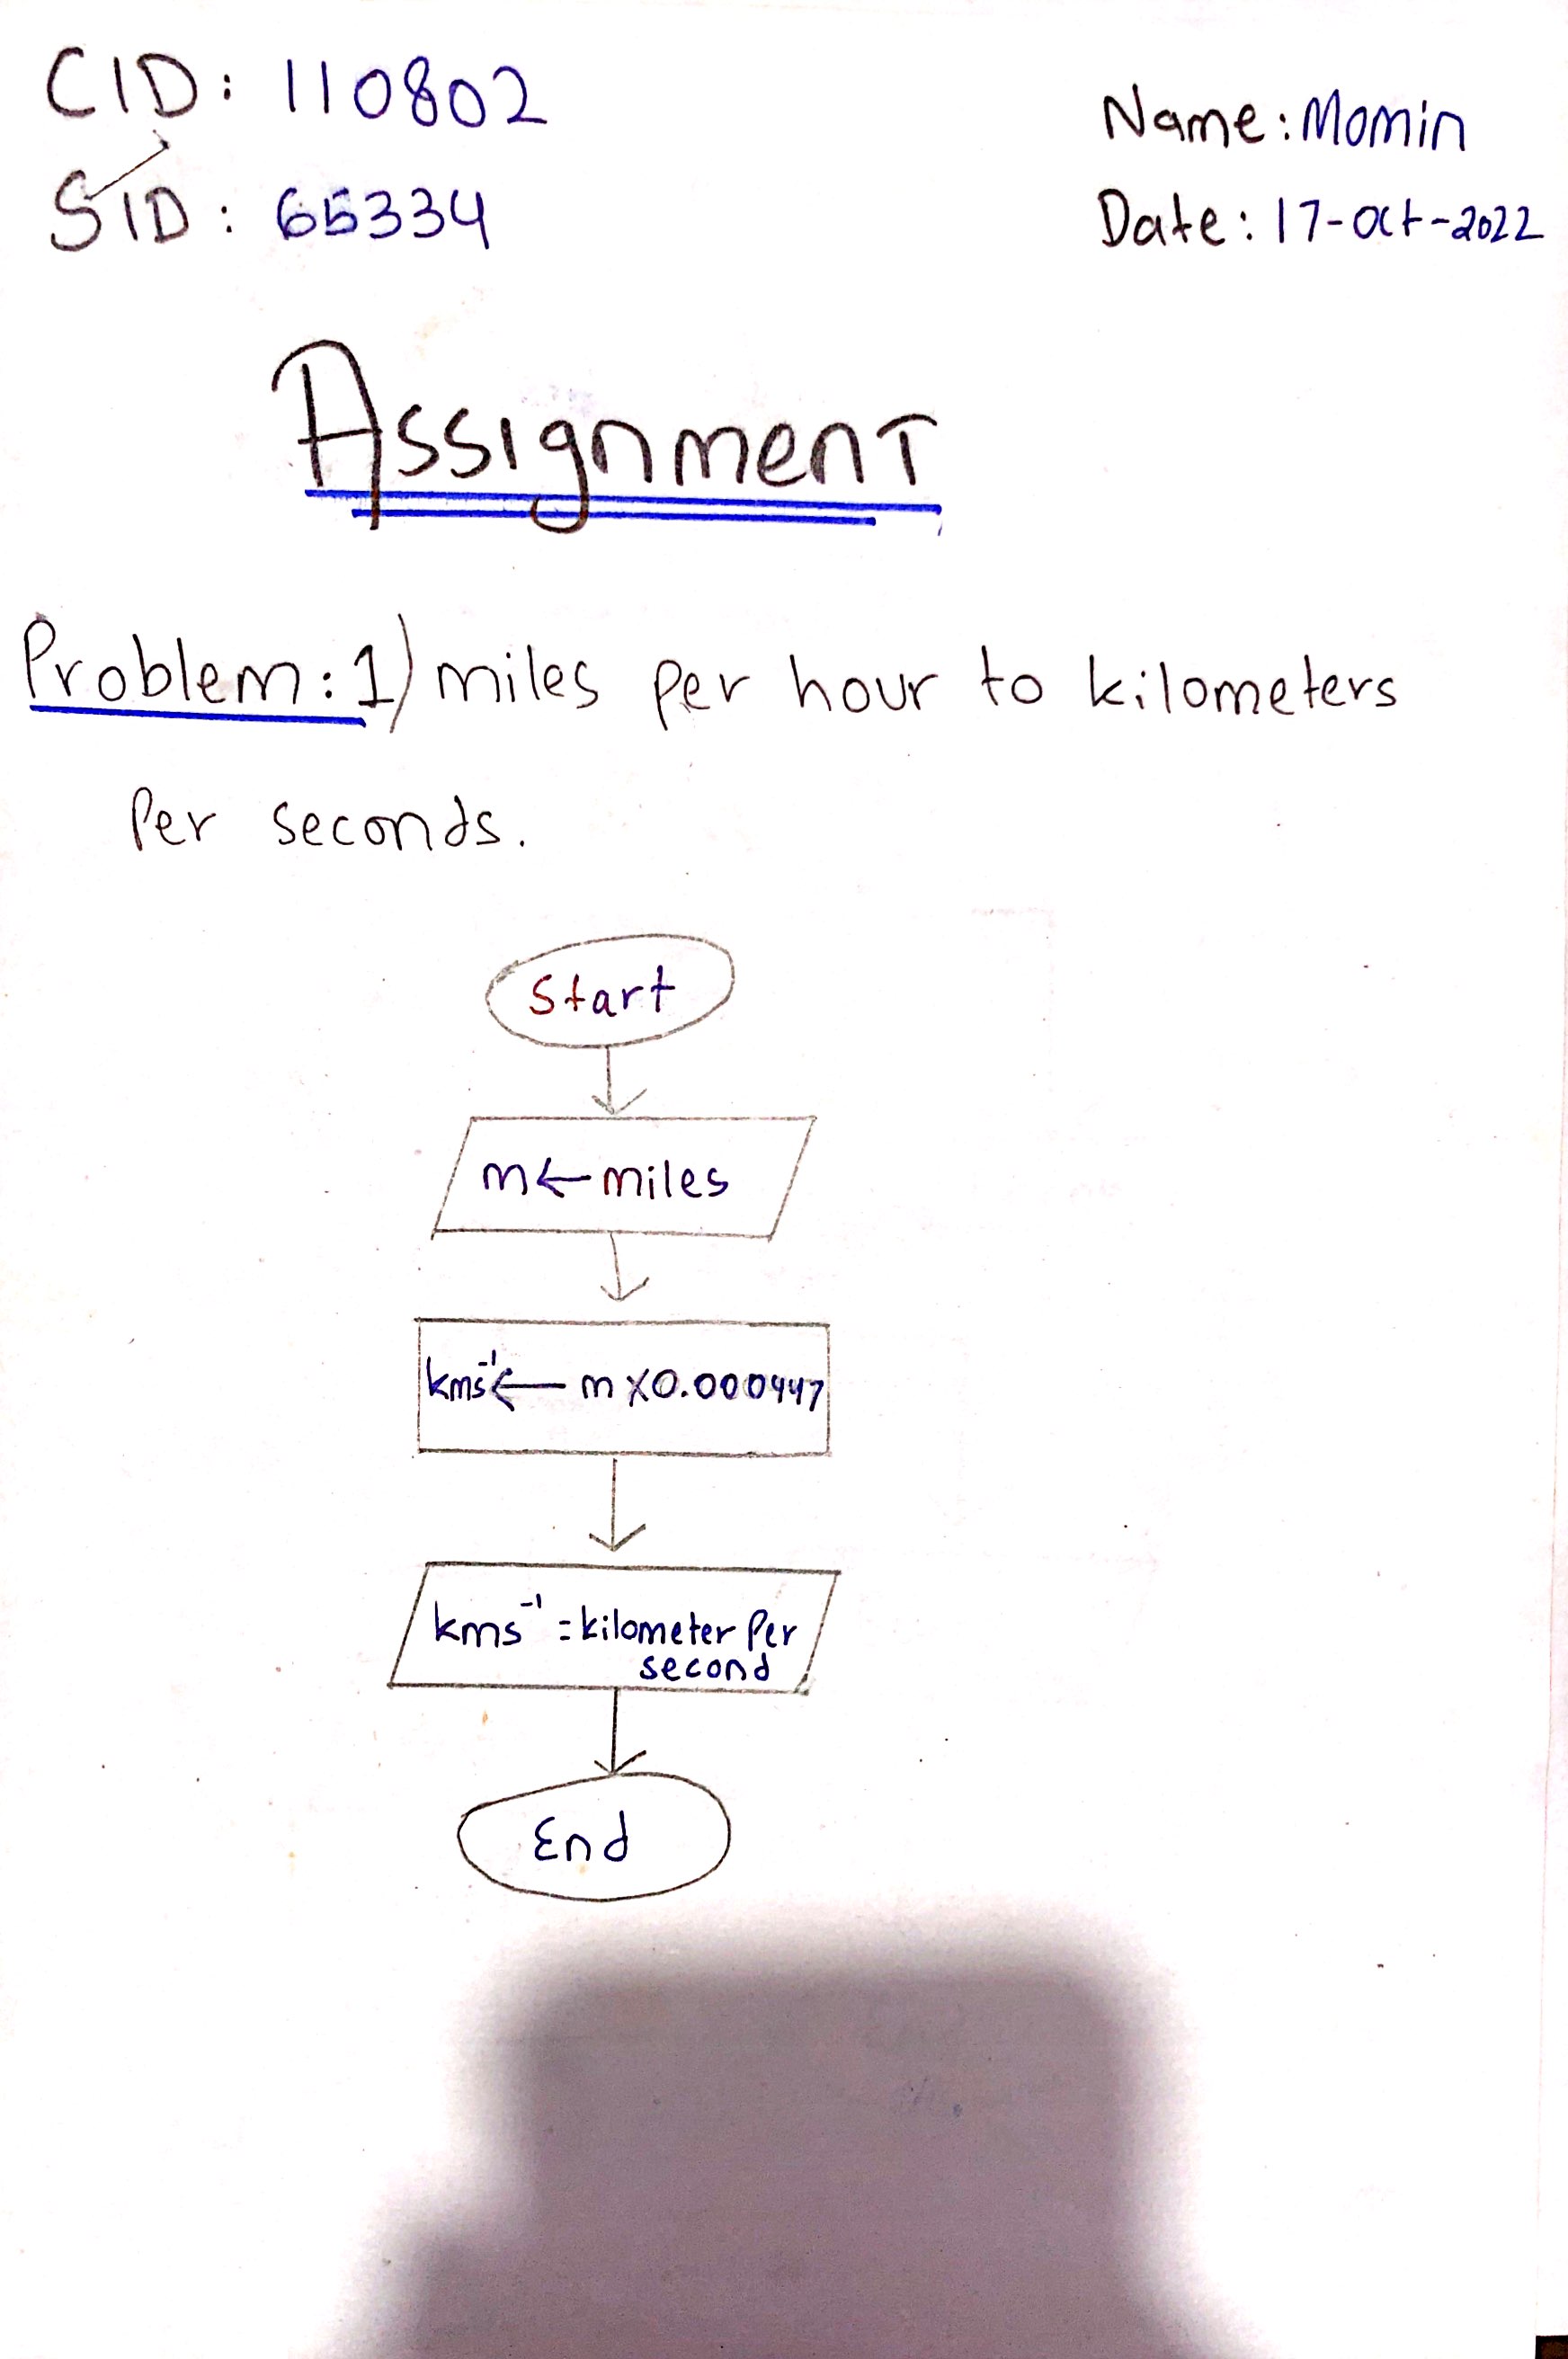 CID: 110802
Name: Momin
SID: 65334
Date: 17-Oct-2022
Assignment
Problem: 1) miles per hour to kilometers
Per seconds.
Start
m ← miles
kms⁻¹ ← m X 0.000447
kms⁻¹ = kilometer Per
second
End